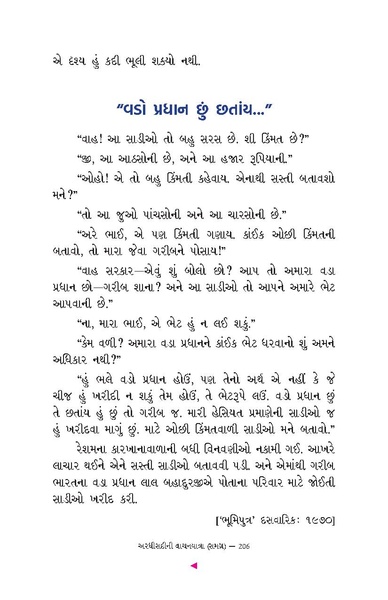 એ દૃશ્ય હું કદી ભૂલી શક્યો નથી.
“વડો પ્રધાન છું છતાંય...”
“વાહ! આ સાડીઓ તો બહુ સરસ છે. શી કિંમત છે?”
“જી, આ આઠસોની છે, અને આ હજાર રૂપિયાની.”
“ઓહો! એ તો બહુ કિંમતી કહેવાય. એનાથી સસ્તી બતાવશો
મને?”
“તો આ જુઓ પાંચસોની અને આ ચારસોની છે.”
“અરે ભાઈ, એ પણ કિંમતી ગણાય. કાંઈક ઓછી કિંમતની
બતાવો, તો મારા જેવા ગરીબને પોસાય!”
“વાહ સરકાર—એવું શું બોલો છો? આપ તો અમારા વડા
પ્રધાન છો—ગરીબ શાના? અને આ સાડીઓ તો આપને અમારે ભેટ
આપવાની છે.”
“ના, મારા ભાઈ, એ ભેટ હું ન લઈ શકું.”
“કેમ વળી? અમારા વડા પ્રધાનને કાંઈક ભેટ ધરવાનો શું અમને
અધિકાર નથી?”
“હું ભલે વડો પ્રધાન હોઉં, પણ તેનો અર્થ એ નહીં કે જે
ચીજ હું ખરીદી ન શકું તેમ હોઉં, તે ભેટરૂપે લઉં. વડો પ્રધાન છું
તે છતાંય હું છું તો ગરીબ જ. મારી હેસિયત પ્રમાણેની સાડીઓ જ
હું ખરીદવા માગું છું. માટે ઓછી કિંમતવાળી સાડીઓ મને બતાવો.”
રેશમના કારખાનાવાળાની બધી વિનવણીઓ નકામી ગઈ. આખરે
લાચાર થઈને એને સસ્તી સાડીઓ બતાવવી પડી. અને એમાંથી ગરીબ
ભારતના વડા પ્રધાન લાલ બહાદુરજીએ પોતાના પરિવાર માટે જોઈતી
સાડીઓ ખરીદ કરી.
[‘ભૂમિપુત્ર’ દસવારિક: ૧૯૭૦]
અરધીસદીની વાચનયાત્રા (સમગ્ર) — 206